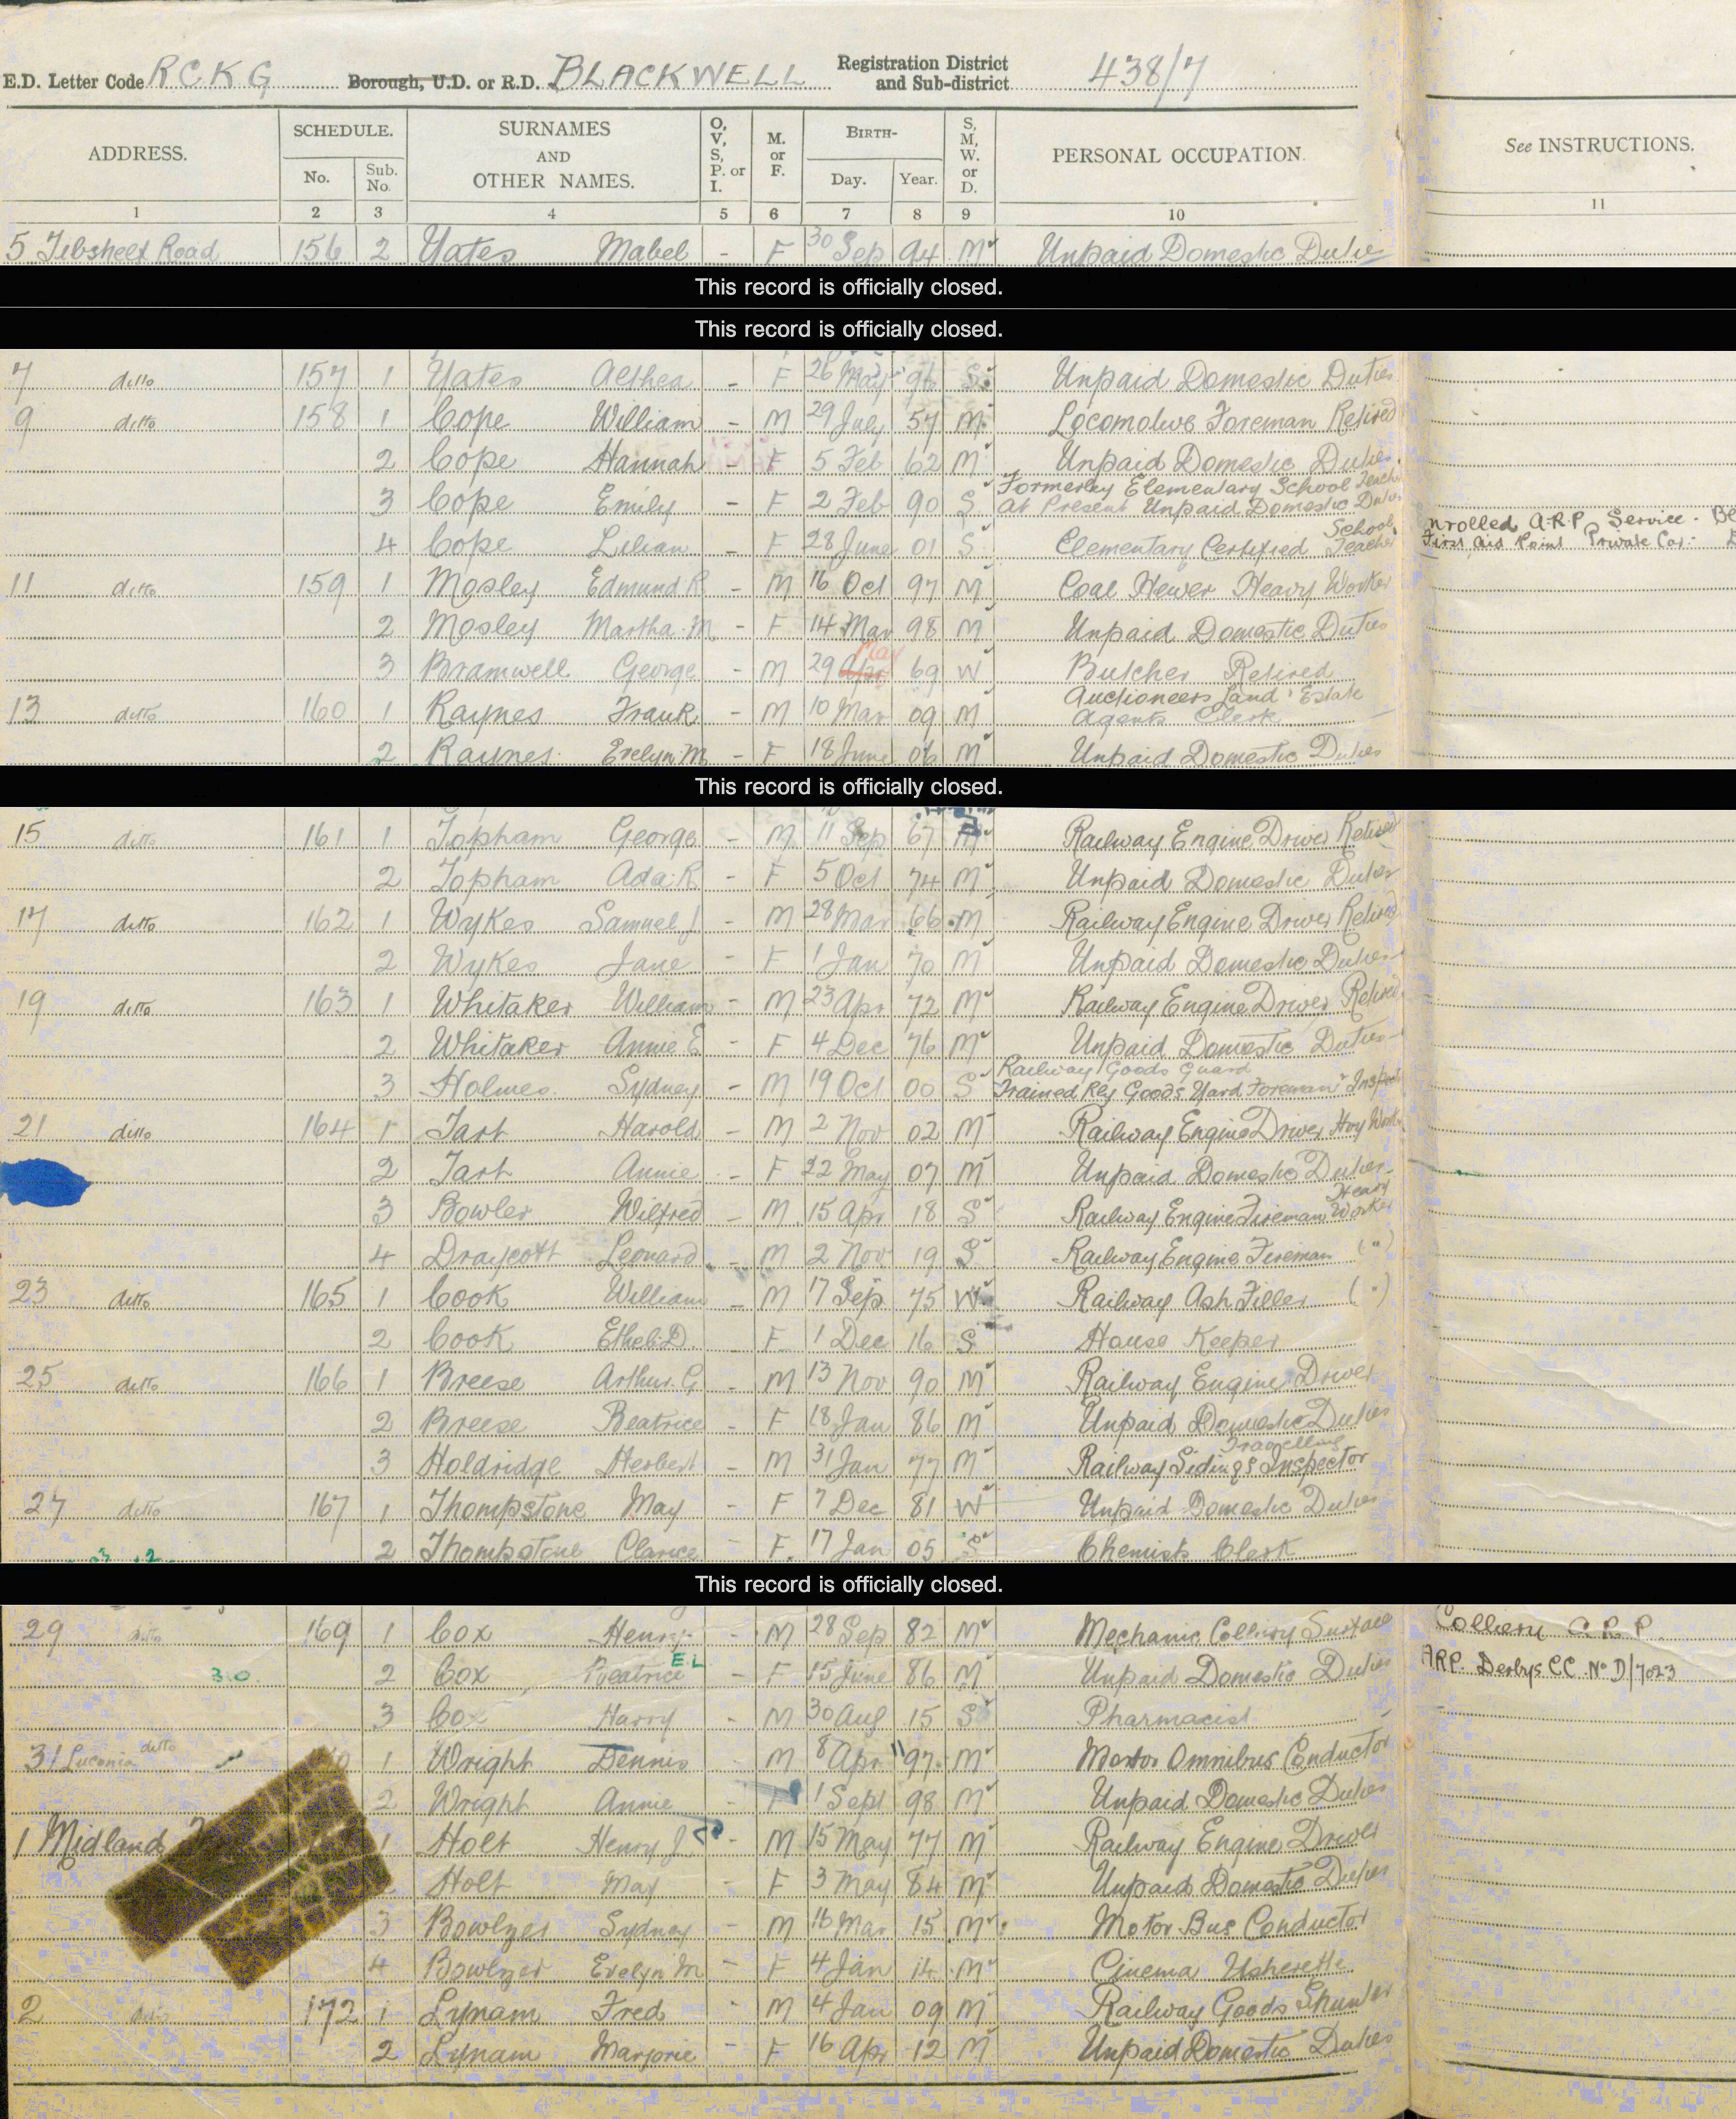 E.D. Letter Code RCKG Borough, U.D. or R.D. BLACKWELL Registration District and Sub-district 438/7
ADDRESS. SCHEDULE. No. Sub. No. SURNAMES AND OTHER NAMES. O, V, S, P. or I. M. or F. BIRTH- Day. Year. S, M, W. or D. PERSONAL OCCUPATION. See INSTRUCTIONS.
1 2 3 4 5 6 7 8 9 10 11
5 Tibshelf Road 156 2 Yates Mabel - F 30 Sep 94 M Unpaid Domestic Duties
This record is officially closed.
This record is officially closed.
7 ditto 157 1 Yates Aethea - F 26 May 96 S Unpaid Domestic Duties
9 ditto 158 1 Cope William - M 29 July 57 M Locomotive Foreman Retired
2 Cope Hannah - F 5 Feb 62 M Unpaid Domestic Duties
3 Cope Emily - F 2 Feb 90 S Formerley Elementary School Teacher At Present Unpaid Domestic Duties
4 Cope Lilian - F 28 June 01 S Elementary Certified School Teacher nrolled A.R.P. Service. First Aid Point Private Car.
11 ditto 159 1 Mosley Edmund R - M 16 Oct 97 M Coal Hewer Heavy Worker
2 Mosley Martha M. - F 14 Mar 98 M Unpaid Domestic Duties
3 Bramwell George - M 29 Apr May 69 W Butcher Retired
13 ditto 160 1 Raynes Frank - M 10 Mar 09 M Auctioneers Land & Estate Agents Clerk
2 Raynes Evelyn M - F 18 June 06 M Unpaid Domestic Duties
This record is officially closed.
15 ditto 161 1 Topham George - M 11 Sep 67 M Railway Engine Driver Retired
2 Topham Ada R - F 5 Oct 74 M Unpaid Domestic Duties
17 ditto 162 1 Wykes Samuel J - M 28 Mar 66 M Railway Engine Driver Retired
2 Wykes Jane - F 1 Jan 70 M Unpaid Domestic Duties
19 ditto 163 1 Whitaker William - M 23 Apr 72 M Railway Engine Driver Retired
2 Whitaker Annie E - F 4 Dec 76 M Unpaid Domestic Duties
3 Holmes Sydney - M 19 Oct 00 S Railway Goods Guard Trained Rly Goods Yard Foreman & Inspector
21 ditto 164 1 Tart Harold - M 2 Nov 02 M Railway Engine Driver Hvy Work
2 Tart Annie - F 22 May 07 M Unpaid Domestic Duties
3 Bowler Wilfred - M 15 Apr 18 S Railway Engine Fireman Heavy Worker
4 Draycott Leonard - M 2 Nov 19 S Railway Engine Fireman (")
23 ditto 165 1 Cook William - M 17 Sep 75 W Railway Ash Filler (")
2 Cook Ethel D. F 1 Dec 16 S House Keeper
25 ditto 166 1 Breese Arthur G - M 13 Nov 90 M Railway Engine Driver
2 Breese Beatrice - F 18 Jan 86 M Unpaid Domestic Duties
3 Holdridge Herbert - M 31 Jan 77 M Railway Sidings Travelling Inspector
27 ditto 167 1 Thompstone May - F 7 Dec 81 W Unpaid Domestic Duties
2 Thompstone Clarice - F 17 Jan 05 S Chemists Clerk
This record is officially closed.
29 ditto 169 1 Cox Henry - M 28 Sep 82 M Mechanic Colliery Surface Colliery A.R.P.
30 2 Cox Beatrice EL - F 15 June 86 M Unpaid Domestic Duties ARP. Derbys CC No D/7023
3 Cox Harry - M 30 Aug 15 S Pharmacist
31 Luconia ditto 1 Wright Dennis - M 8 Apr 97 M Motor Omnibus Conductor
2 Wright Annie F 1 Sept 98 M Unpaid Domestic Duties
1 Midland 1 Holt Henry J. - M 15 May 77 M Railway Engine Driver
Holt May - F 3 May 84 M Unpaid Domestic Duties
3 Bowlzer Sydney - M 16 Mar 15 M Motor Bus Conductor
4 Bowlzer Evelyn M - F 4 Jan 14 M Cinema Usherette
2 ditto 172 1 Lynam Fred - M 4 Jan 09 M Railway Goods Shunter
2 Lynam Marjorie - F 16 Apr 12 M Unpaid Domestic Duties